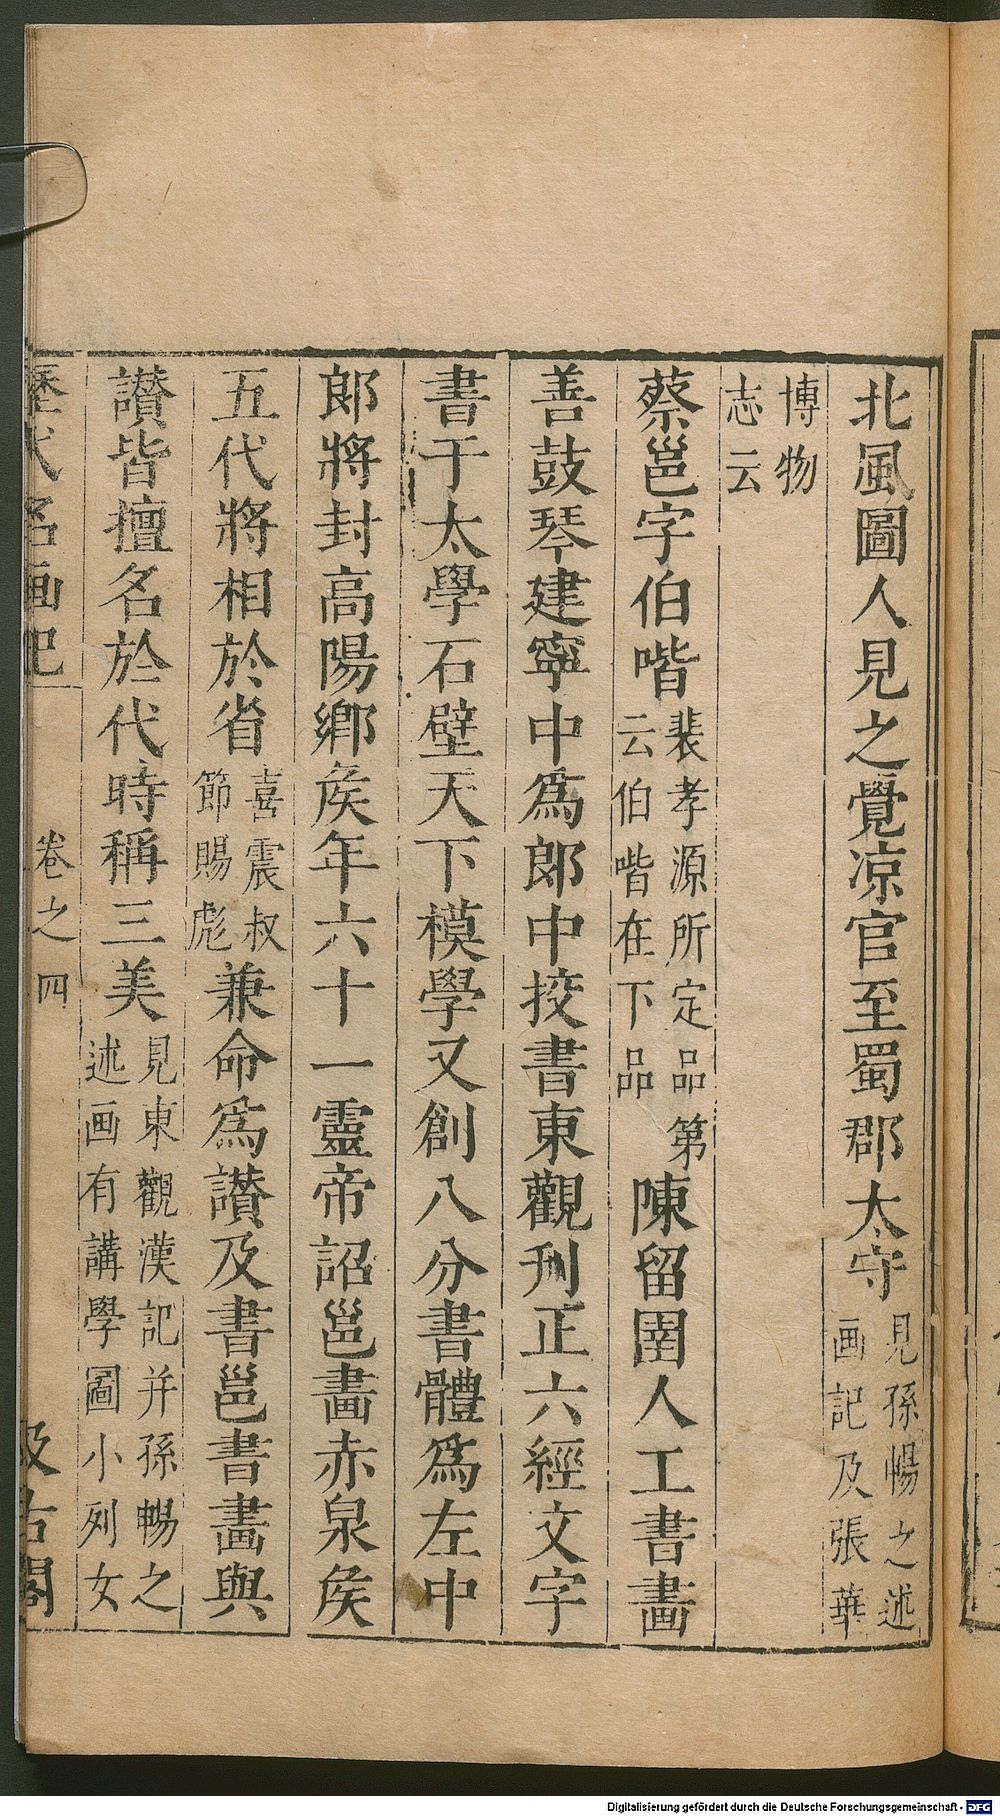 北風圖人見之覺凉官至蜀郡太守見孫暢之述画記及張華
博物志云
蔡邕字伯喈裴孝源所定品第云伯喈在下品陳留圉人工書畫
善鼓琴建寧中爲郎中挍書東觀刋正六經文字
書于太學石壁天下模學又創八分書體爲左中
郎將封高陽鄉矦年六十一靈帝詔邕畫赤泉矦
五代將相於省喜震叔節賜彪兼命爲讃及書邕書畫與
讃皆擅名於代時稱三美見東觀漢記并孫暢之述画有講學圖小列女
歷代名画記 卷之四 汲古閣
Digitalisierung gefördert durch die Deutsche Forschungsgemeinschaft - DFG